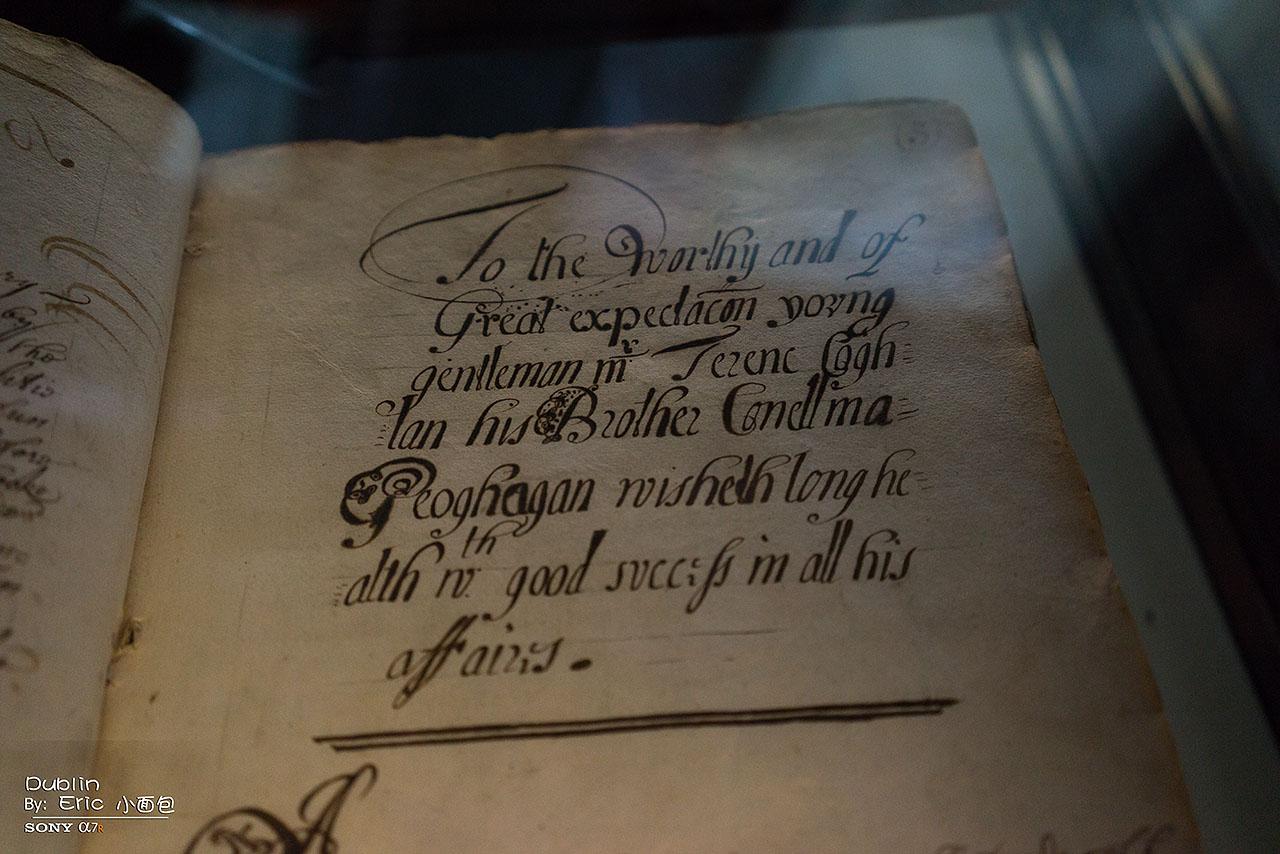 (3)
To the worthy and of
Great expectacōn yovng
gentleman mr Terenc Cogh=
=lan his Brother Conell ma=
Geoghagan wisheth long he=
=alth wth good svccess in all his
affaires.
Dublin
By: Eric 小面包
SONY α7R